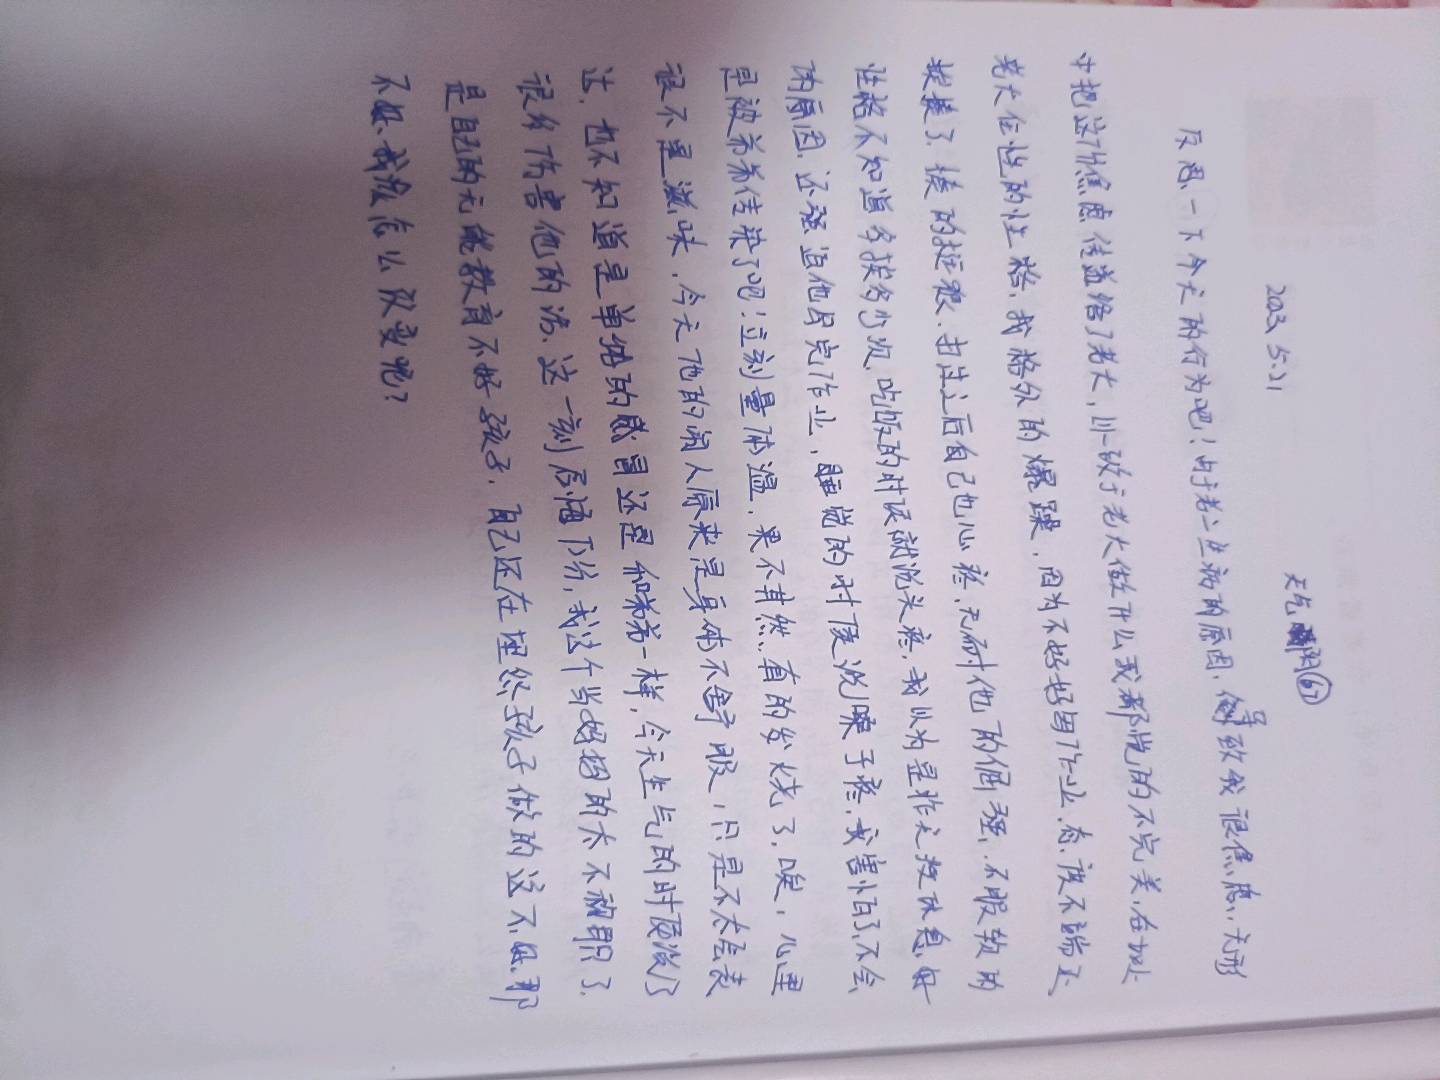 2023.5.21 天气 阴 61
反思一下今天的行为吧！由于老二生病的原因，导致我很焦虑，无形
中把这份焦虑传递给了老大，以致于老大做什么我都觉的不完美，在加上
老大任性的性格，我格外的爆躁，因为不好好写作业，态度不端正
挨揍了，揍的挺狠，打过之后自己也心疼，无耐他的倔强、不服软的
性格不知道多挨多少次，吃饭的时候就说头疼，我以为是昨天没休息好
的原因，还强迫他写完作业，睡觉的时候说嗓子疼，我害怕了，不会
是被弟弟传染了吧！立刻量体温，果不其然、真的发烧了，唉，心里
很不是滋味，今天他的闹人原来是身体不舒服，只是不太会表
达，也不知道是单纯的感冒还是和弟弟一样，今天生气的时候说了
很多伤害他的话，这一刻后悔万分，我这个当妈妈的太不称职了，
是自己的无能教育不好孩子，自己还在埋怨孩子做的这不好、那
不好、我该怎么改变呢？